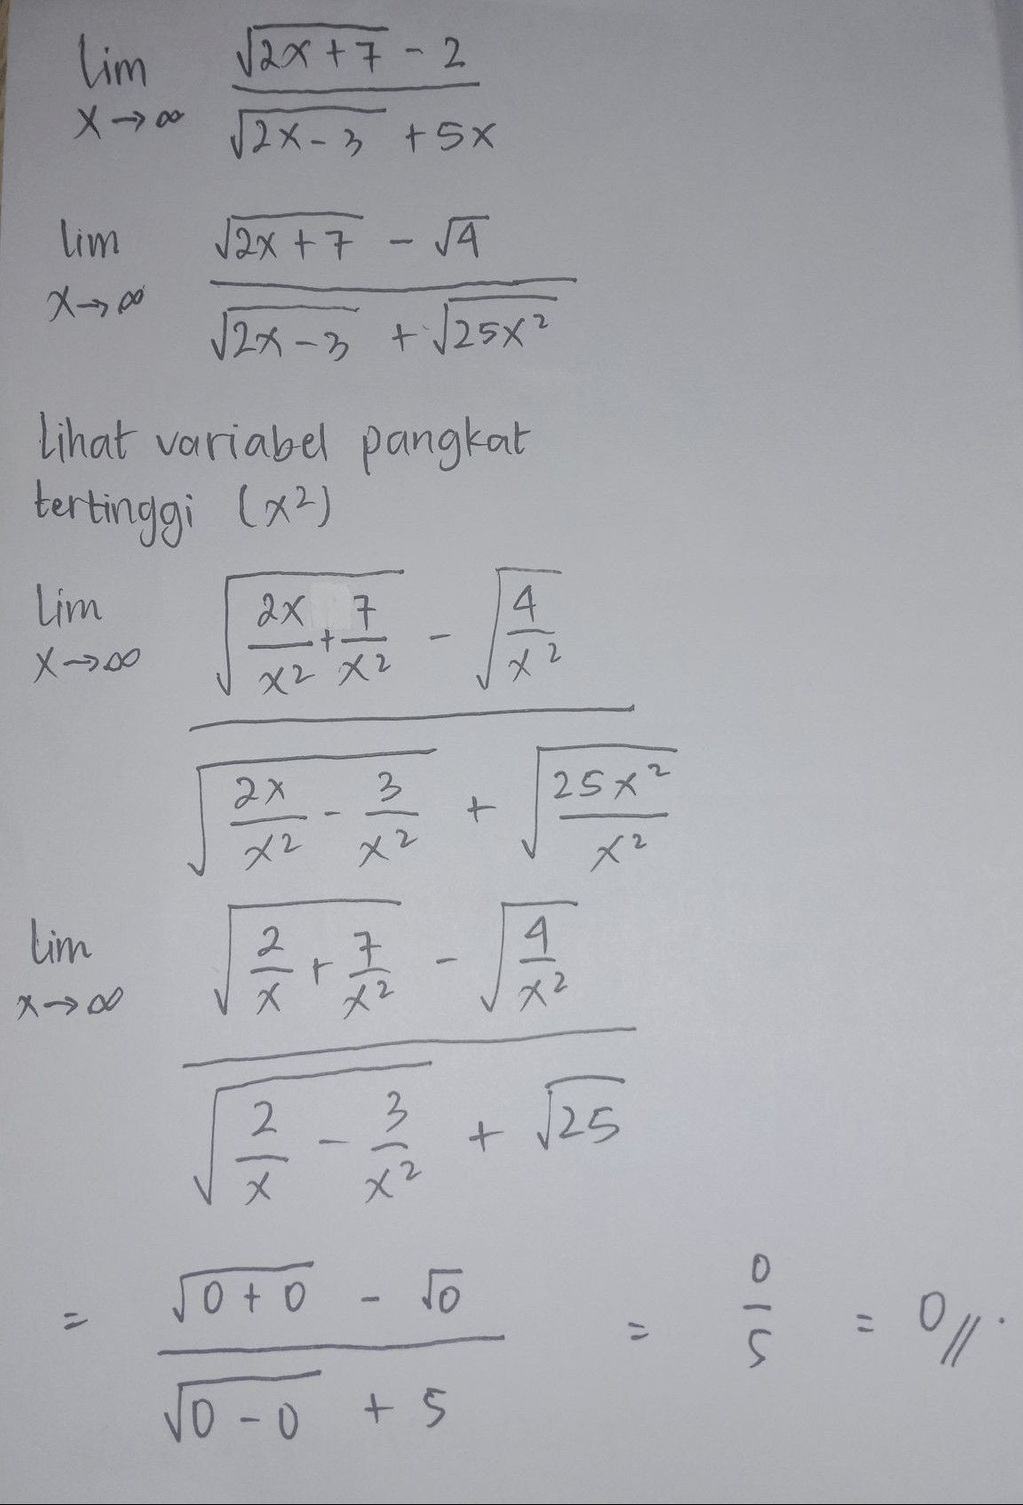 lim x→∞ (√(2x+7) - 2) / (√(2x-3) + 5x)
lim x→∞ (√(2x+7) - √4) / (√(2x-3) + √(25x²))
lihat variabel pangkat
tertinggi (x²)
lim x→∞ (√(2x/x² + 7/x²) - √(4/x²)) / (√(2x/x² - 3/x²) + √(25x²/x²))
lim x→∞ (√(2/x + 7/x²) - √(4/x²)) / (√(2/x - 3/x²) + √25)
= (√(0+0) - √0) / (√(0-0) + 5) = 0/5 = 0//.